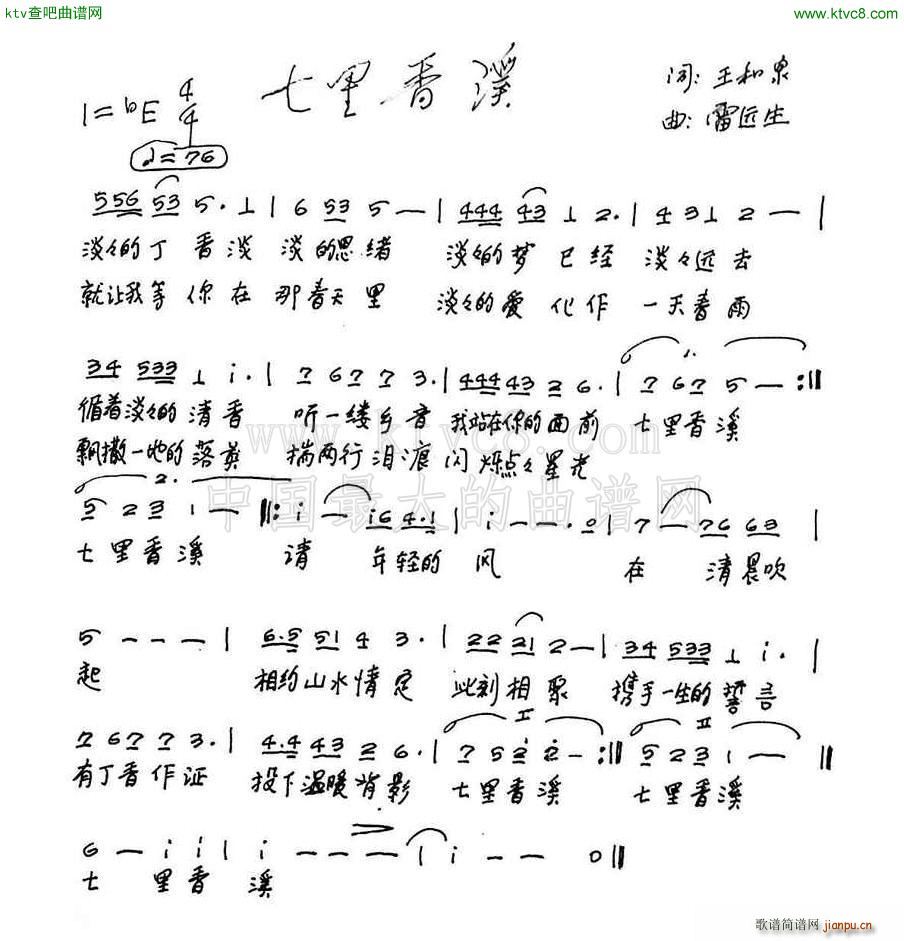 ktv查吧曲谱网 www.ktvc8.com
七里香溪
词: 王和泉
1=bE 4/4
曲: 雷远生
♩=76
556 53 5. 1 | 6 53 5 — | 444 43 1 2. | 4 31 2 — |
淡々的丁香淡 淡的思绪 淡々的梦已经 淡々远去
就让我等你在那春天里 淡々的爱化作一天春雨
34 533 1 i. | 7 67 7 3. | 444 43 2 6. | 1. 7 67 5 — :‖
循着淡々的清香 听一缕乡音 我站在你的面前 七里香溪
飘撒一地的落英 揣两行泪痕 闪烁点々星光
www.ktvc8.com
中国最大的曲谱网
2. 5 23 1 — ‖: i — i6 4.1 | i — — .0 | 7 — 76 63 |
七里香溪 请 年轻的风 在 清晨吹
5 — — — | 6.5 51 4 3. | 22 21 2 — | 34 533 1 i. |
起 相约山水情定 此刻相聚 携手一生的誓言
7 67 7 3. | 4.4 43 2 6. | I 7 52 2 — :‖ II 5 23 1 — ‖
有丁香作证 投下温暖背影 七里香溪 七里香溪
6 — i i | i — — — | i — — 0 ‖
七 里香 溪
歌谱简谱网 jianpu.cn